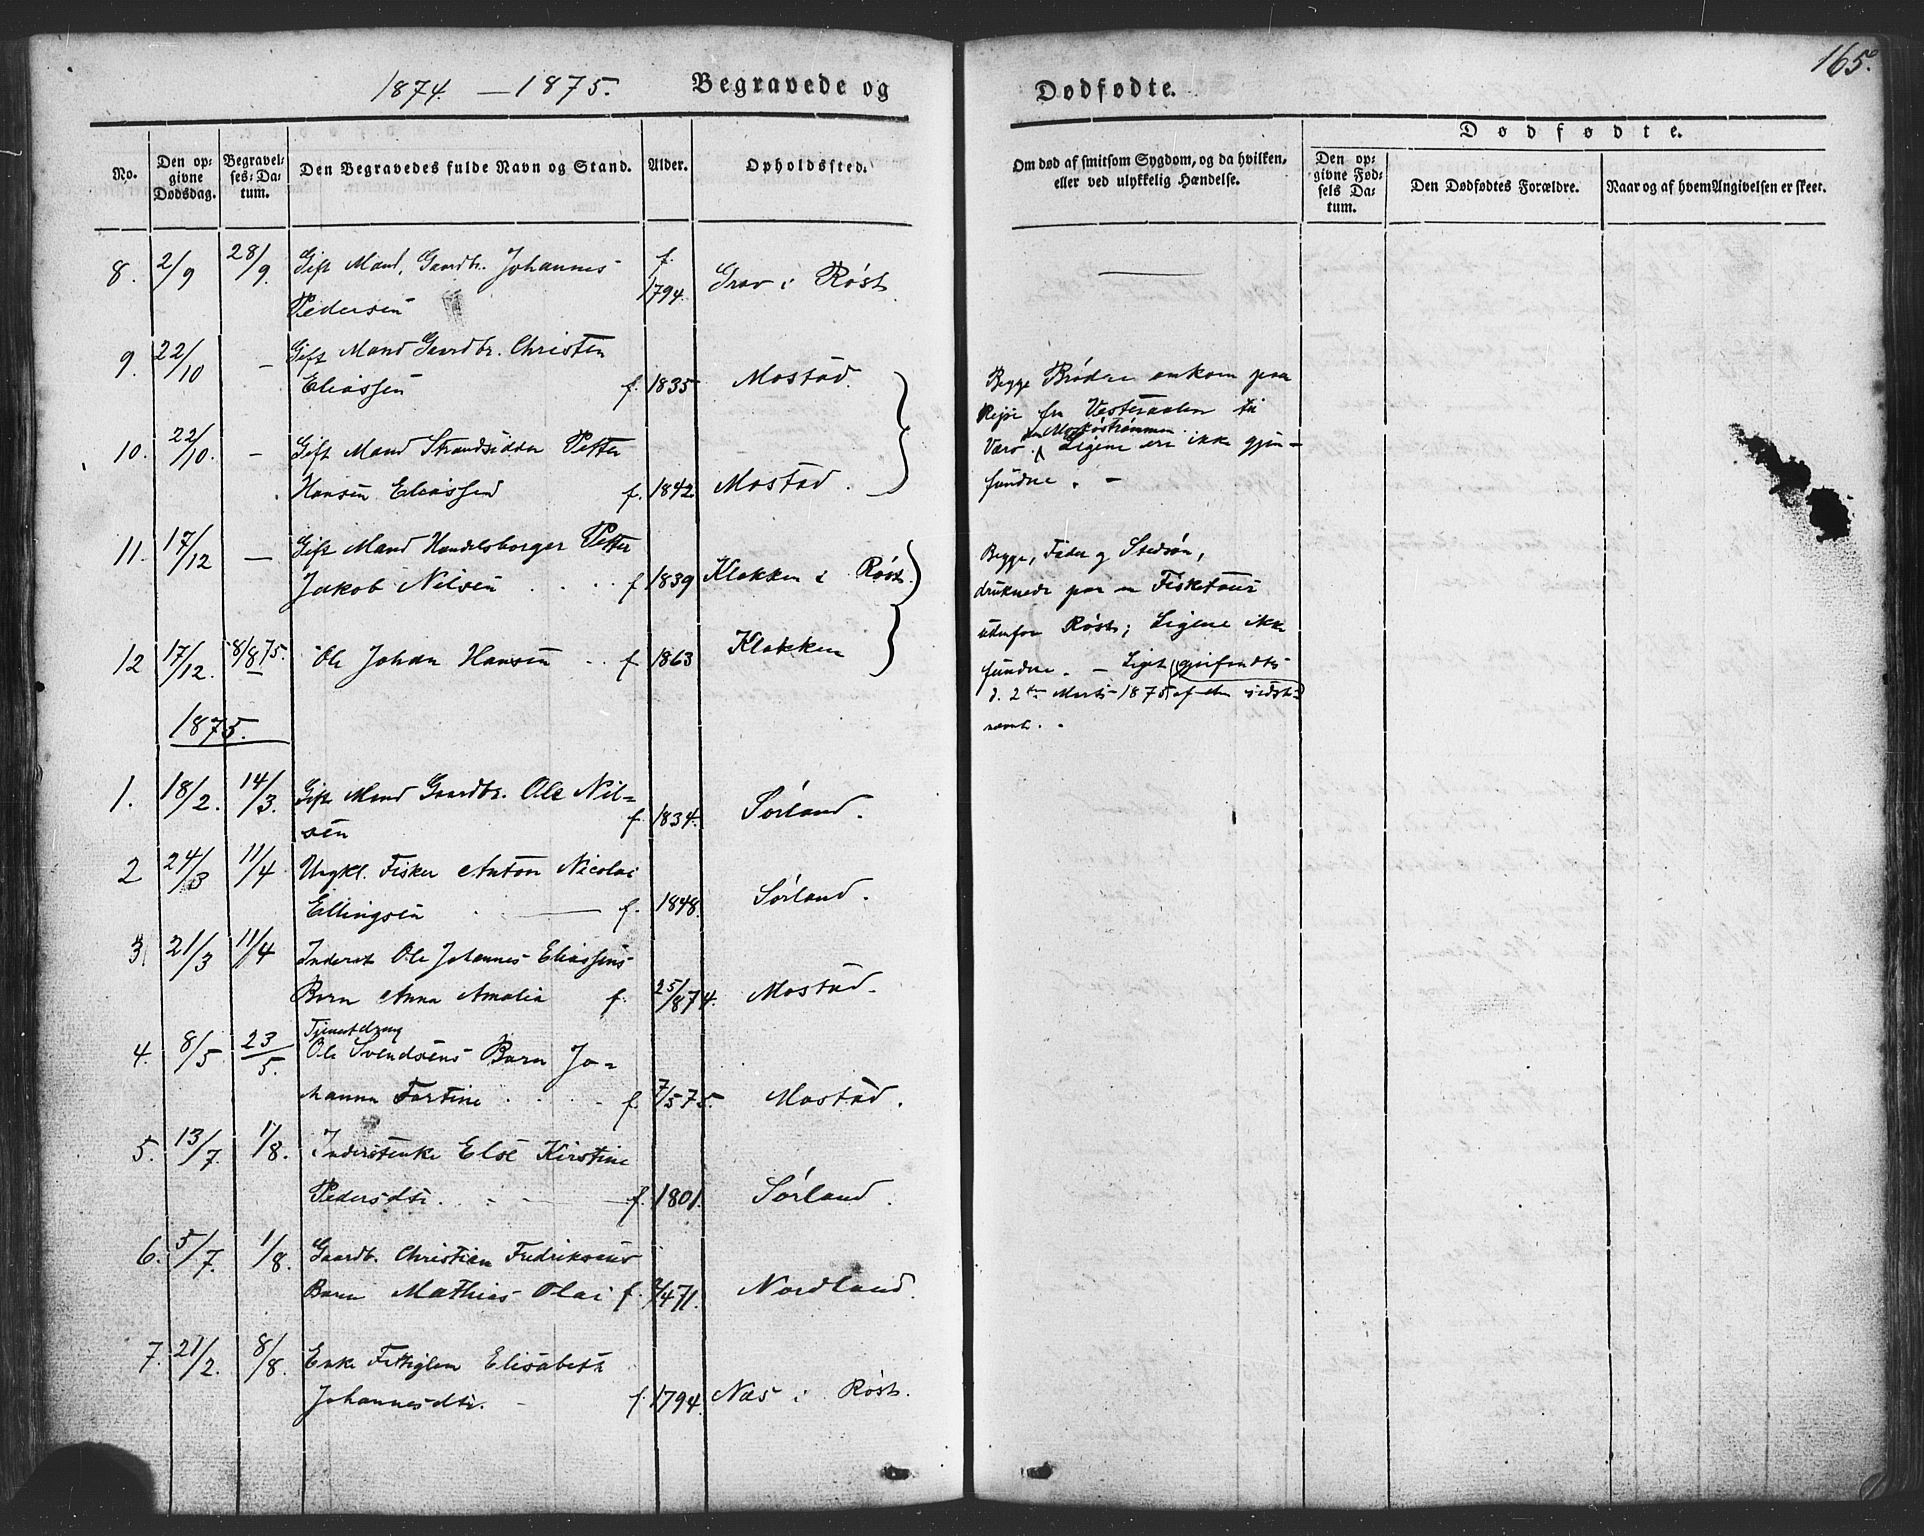 1874. — 1875. Begravede og
Dødfødte.
165.
No.
Den op-
givne
Dødsdag.
Begravel-
ses-Da-
tum.
Den Begravedes fulde Navn og Stand.
Alder.
Opholdssted.
Om død af smitsom Sygdom, og da hvilken,
eller ved ulykkelig Hændelse.
Dødfødte.
Den op-
givne Fød-
sels Da-
tum.
Den Dødfødtes Forældre.
Naar og af hvem Angivelsen er skeet.
8. 2/9 28/9 Gift Mand, Gaardbr. Johannes
Pedersen f. 1794. Grav i Røst.
9. 22/10 — Gift Mand Gaardbr. Christen
Eliassen f. 1835 Mostad.
10. 22/10. — Gift Mand Strandsidder Petter
Hansen Eliassen f. 1842 Mostad.
Begge Brødre omkom paa
Rejse fra Vesteraalen til
Værø i Moskøstrømmen. Ligene ere ikke gjen-
fundne. —
11. 17/12 — Gift Mand Handelsborger Petter
Jakob Nilsen f 1839 Klakken i Røst.
12 17/12. 8/8 75. Ole Johan Hansen f 1863 Klakken
Begge, Fader og Stedsøn,
druknede paa en Fisketour
udenfor Røst; Ligene ikke
fundne. — Liget gjenfandts
d. 2den Marts 1875 af den sidst-
nævnte.
1875.
1. 18/2. 14/3. Gift Mand Gaardbr. Ole Nil-
sen f. 1834. Sørland.
2 24/3 11/4 Ungkl. Fisker Anton Nicolai
Ellingsen — f. 1848. Sørland.
3. 21/3 11/4 Inderst Ole Johannes Eliassens
Barn Anna Amalia f. 25/8 74. Mostad.
4. 8/5 23/5. Tjenestdreng
Ole Svendsens Barn Jo-
hanna Fortine f. 7/5 75. Mostad.
5. 13/7. 1/8. Inderstenke Else Kirstine
Pedersdtr. — f. 1801. Sørland.
6. 5/7. 1/8. Gaardb. Christian Fredriksens
Barn Mathias Olai f. 2/4 71. Nordland.
7. 21/2. 8/8. Enke Fattiglem Elisabeth
Johannesdtr. - f. 1794. Næs i Røst.